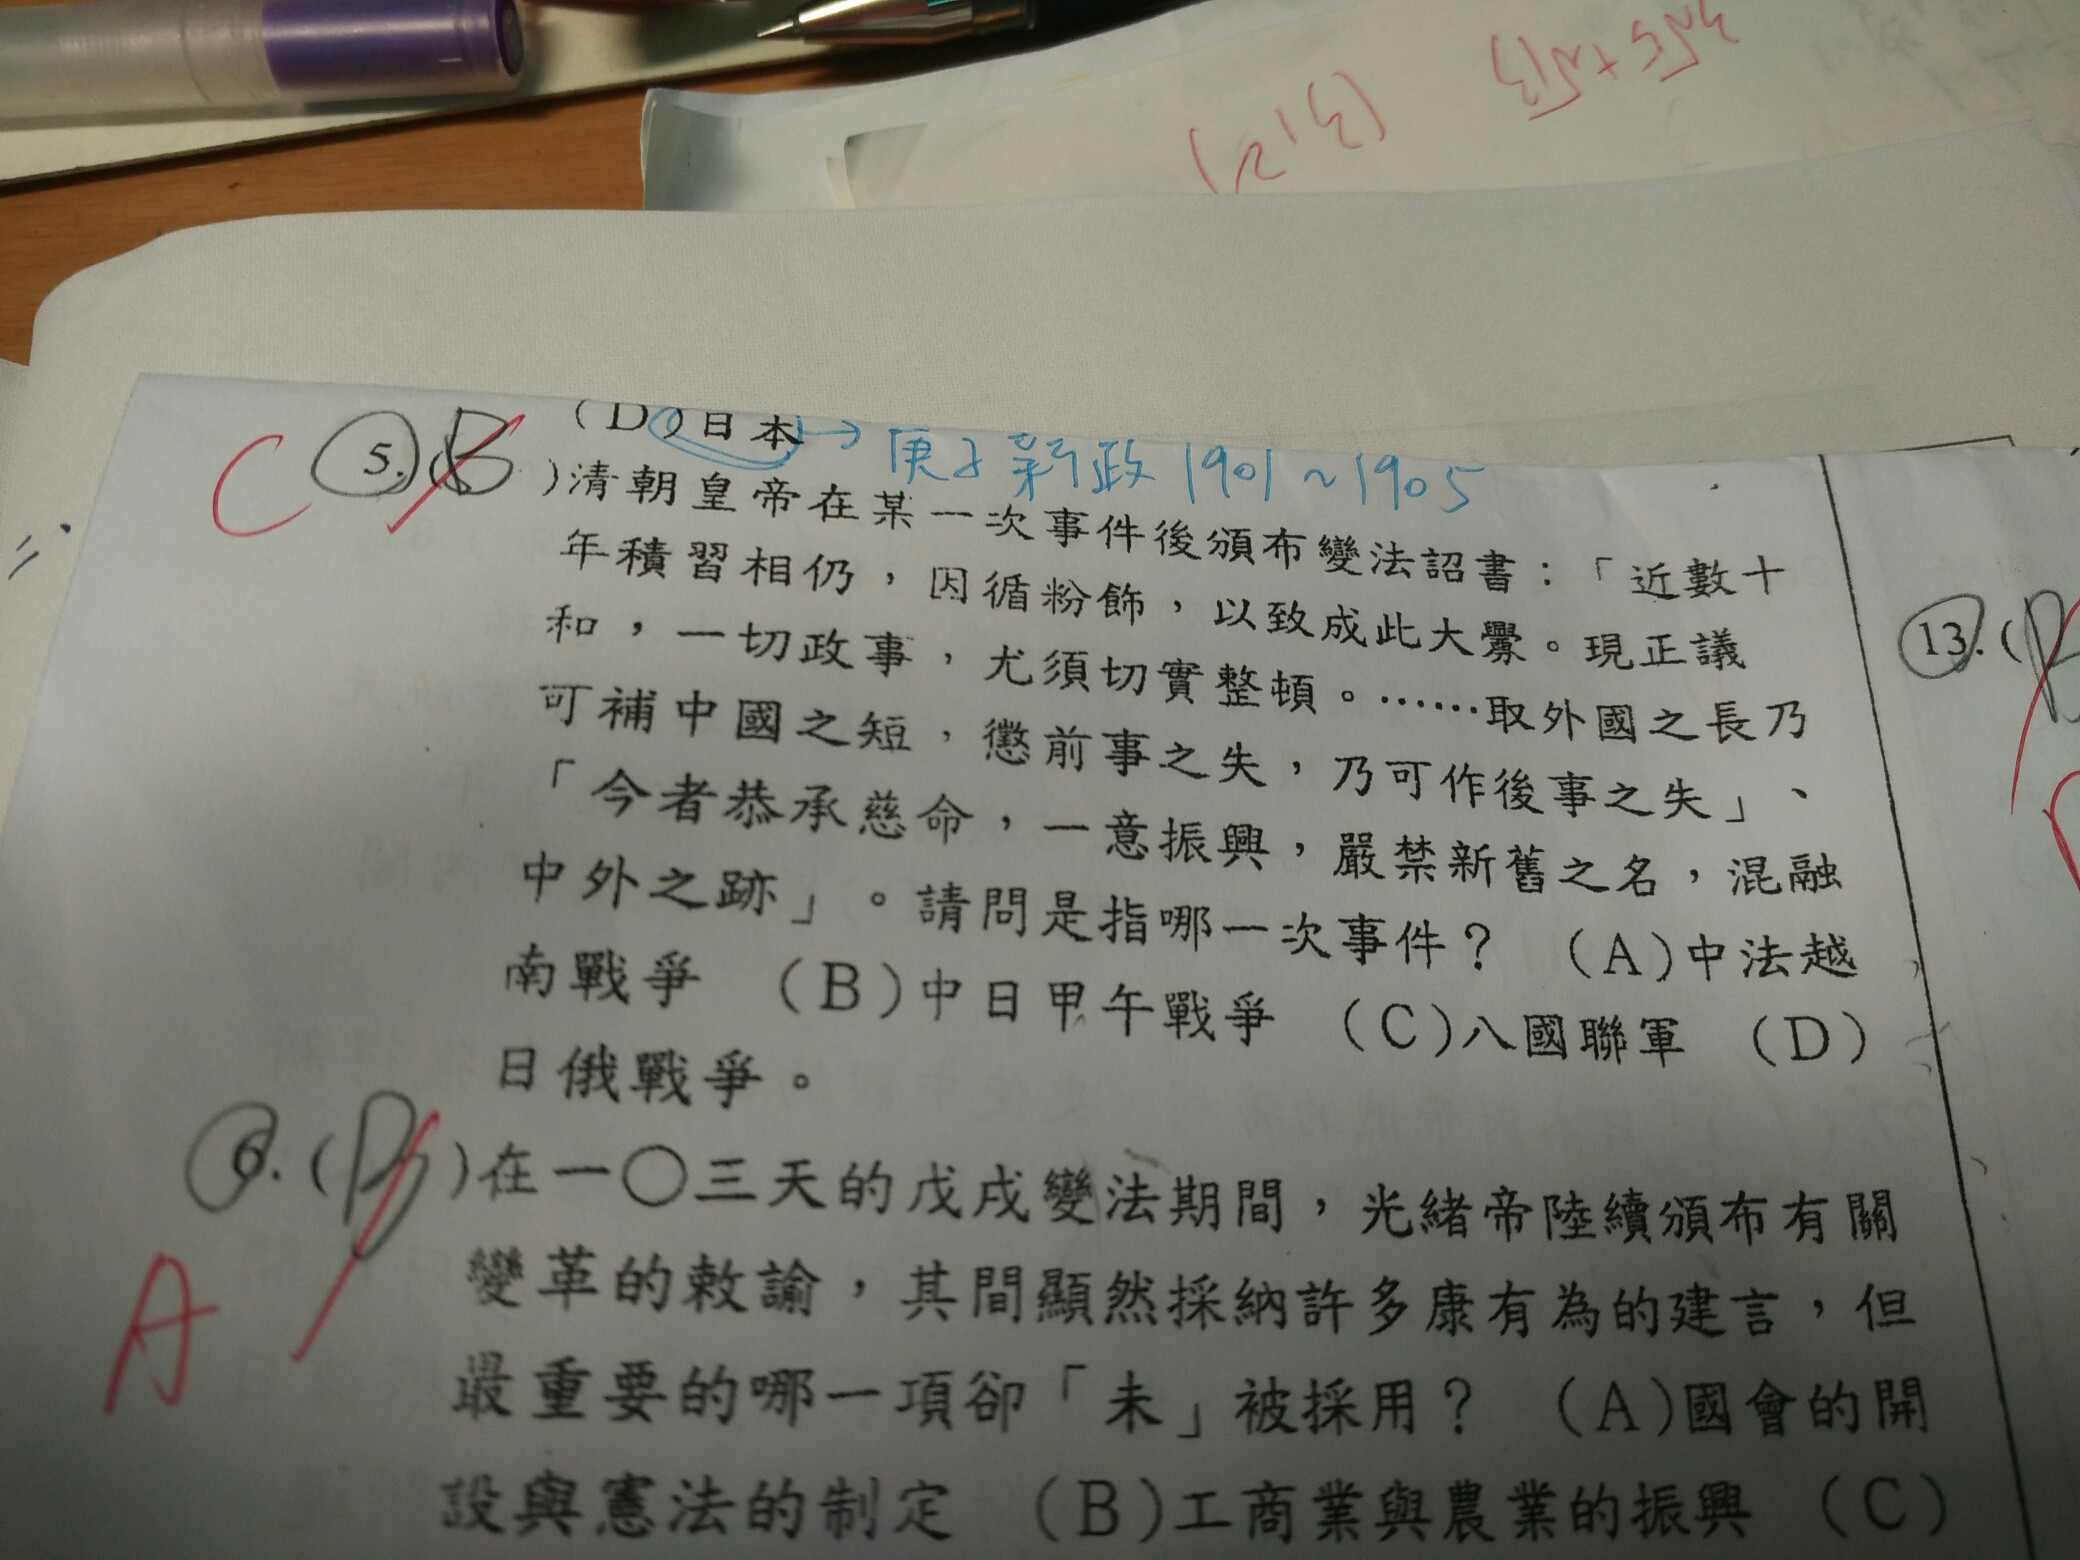 (D)日本→庚子新政 1901~1905
C 5.(B)清朝皇帝在某一次事件後頒布變法詔書:「近數十
年積習相仍,因循粉飾,以致成此大釁。現正議
和,一切政事,尤須切實整頓。……取外國之長乃
可補中國之短,懲前事之失,乃可作後事之失」、
「今者恭承慈命,一意振興,嚴禁新舊之名,混融
中外之跡」。請問是指哪一次事件? (A)中法越
南戰爭 (B)中日甲午戰爭 (C)八國聯軍 (D)
日俄戰爭。
A 6.(B)在一〇三天的戊戌變法期間,光緒帝陸續頒布有關
變革的敕諭,其間顯然採納許多康有為的建言,但
最重要的哪一項卻「未」被採用? (A)國會的開
設與憲法的制定 (B)工商業與農業的振興 (C)
13.(